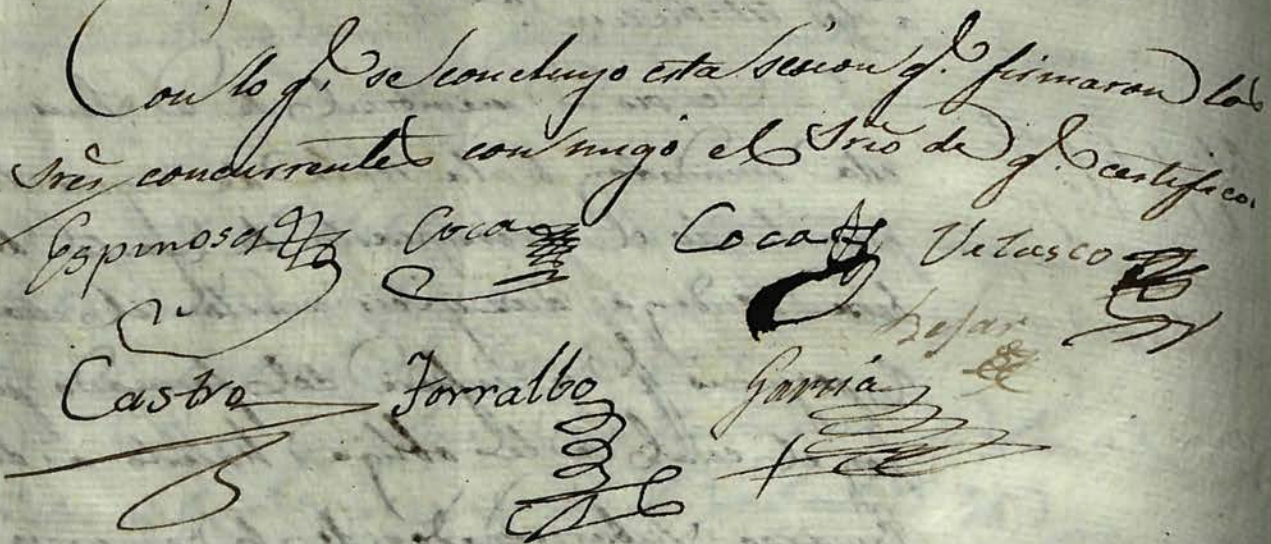 Con lo q.e se concluyo esta sesion q.e firmaron los
Sres concurrentes conmigo el Srio de q.e certifico.
Espinosa Coca Coca Velasco
Castro Torralbo Garcia